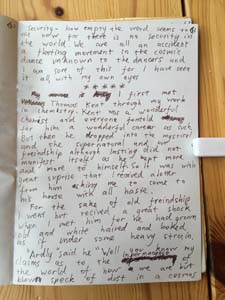 Security - how empty the word seems to
me now for there is no security in
the world. We are all an accident
a fleeting movement in the cosmic
dance unknown to the dancers and
I am sure of this for I have seen
it all with my own eyes
I first met
Thomas Kent through my work
in chemistry. Kent was a wonderful
chemist and everyone foretold
for him a wonderful career as such
But then he dropped into the mysteries
and the supernatural and our
freindship although lasting did not
manifest itself as he kept more
and more to himself. So it was with
great suprise that I recived a letter
from him asking me to come to
his house with all haste.
For the sake of old freindship
I went but recived a great shock
when I met him for he had grown
old and white haired and looked
as if under some heavy strain.
"Ardly" said he "Well you know my
claims as to the impermanence of
the world of how we are but
blown speck of dust in a cosmos